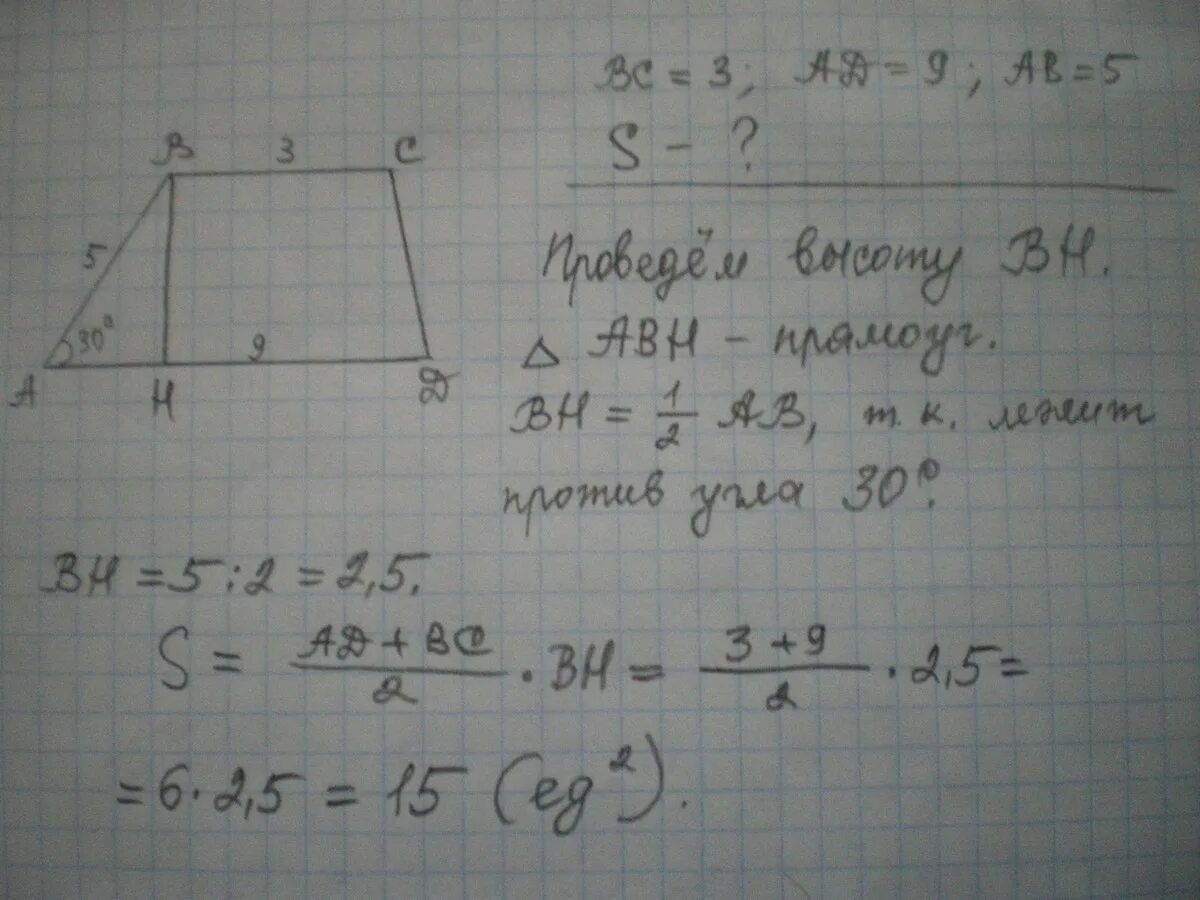 BC = 3; AD = 9; AB = 5
S - ?
B 3 C
5
30°
9
A H D
Проведём высоту BH.
△ ABH - прямоуг.
BH = 1/2 AB, т.к. лежит
против угла 30°.
BH = 5 : 2 = 2,5.
S = (AD + BC)/2 · BH = (3 + 9)/2 · 2,5 =
= 6 · 2,5 = 15 (ед²).